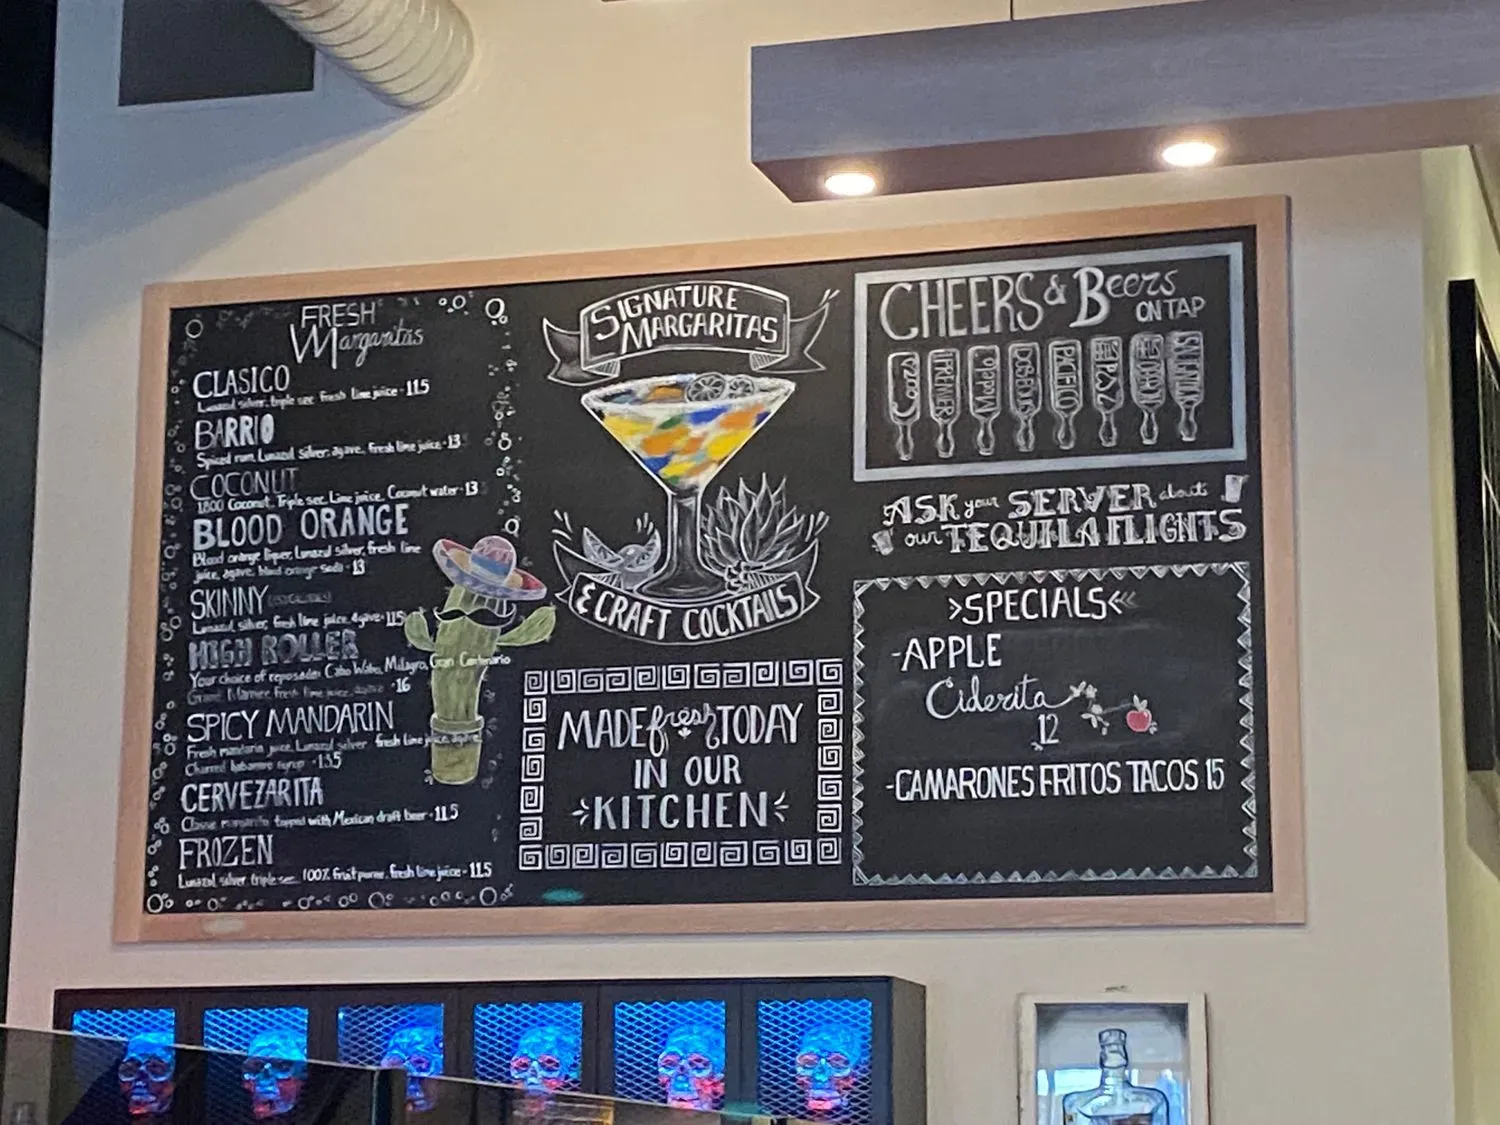 FRESH
Margaritas
CLASICO
Lunazul silver, triple sec fresh lime juice - 11.5
BARRIO
Spiced rum, Lunazul silver, agave, fresh lime juice - 13
COCONUT
1800 Coconut, Triple sec, Lime juice, Coconut water - 13
BLOOD ORANGE
Blood orange liquer, Lunazul silver, fresh lime
juice, agave, blood orange soda - 13
SKINNY
Lunazul silver, fresh lime juice, Agave - 11.5
HIGH ROLLER
Your choice of reposado: Cabo Wabo, Milagro, Gran Centenario
Grand Marnier fresh lime juice, agave - 16
SPICY MANDARIN
Fresh mandarin juice, Lunazul silver fresh lime juice, agave
Charred habanero syrup - 13.5
CERVEZARITA
Classic margarita topped with Mexican draft beer - 11.5
FROZEN
Lunazul silver, triple sec, 100% fruit puree, fresh lime juice - 11.5
SIGNATURE
MARGARITAS
& CRAFT COCKTAILS
MADE fresh TODAY
IN OUR
KITCHEN
CHEERS & Beers
ON TAP
DOS EQUIS
PACIFICO
ASK your SERVER about
our TEQUILA FLIGHTS
>SPECIALS<
-APPLE
Ciderita
12
-CAMARONES FRITOS TACOS 15